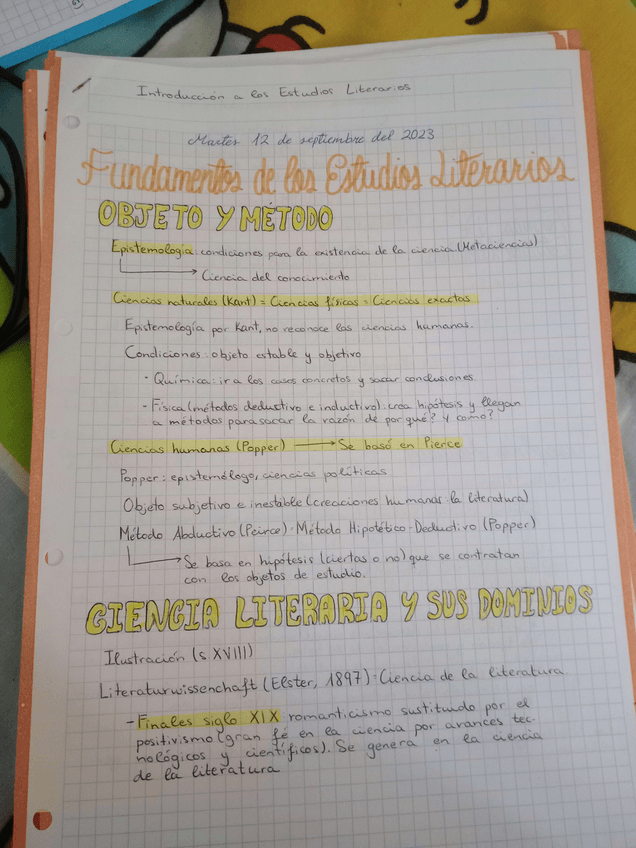 Introducción a los Estudios Literarios
Martes 12 de septiembre del 2023
Fundamentos de los Estudios Literarios
OBJETO Y MÉTODO
Epistemología: condiciones para la existencia de la ciencia (Metaciencias)
Ciencia del conocimiento
Ciencias naturales (Kant) = Ciencias físicas = Ciencias exactas
Epistemología por Kant, no reconoce las ciencias humanas.
Condiciones: objeto estable y objetivo
· Química: ir a los casos concretos y sacar conclusiones
· Física (métodos deductivo e inductivo): crea hipótesis y llegan
a métodos para sacar la razón de por qué? y como?
Ciencias humanas (Popper) → Se basó en Pierce
Popper: epistemólogo, ciencias políticas
Objeto subjetivo e inestable (creaciones humanas: la literatura)
Método Abductivo (Peirce) · Método Hipotético-Deductivo (Popper)
Se basa en hipótesis (ciertas o no) que se contratan
con los objetos de estudio.
CIENCIA LITERARIA Y SUS DOMINIOS
Ilustración (s. XVIII)
Literaturwissenchaft (Elster, 1897): Ciencia de la literatura
- Finales siglo XIX romanticismo sustituido por el
positivismo (gran fé en la ciencia por avances tec-
nológicos y científicos). Se genera en la ciencia
de la literatura